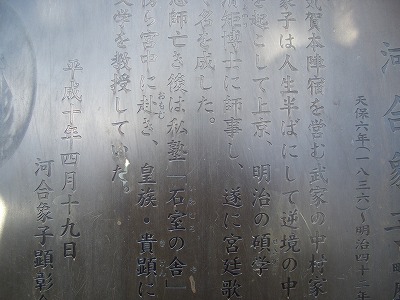 河合象子
天保六年(一八三六)~明治四十二年
気賀本陣宿を営む武家の中村家
象子は人生半ばにして逆境の中
を起こして上京、明治の碩学
清矩博士に師事し、遂に宮廷歌
名を成した。
恩師亡き後は私塾「石室の舎」
いわむろ や
宮中に赴き、皇族・貴顕に
おもむ き けん
文学を教授していた。
平成十年四月十九日
河合象子顕彰会